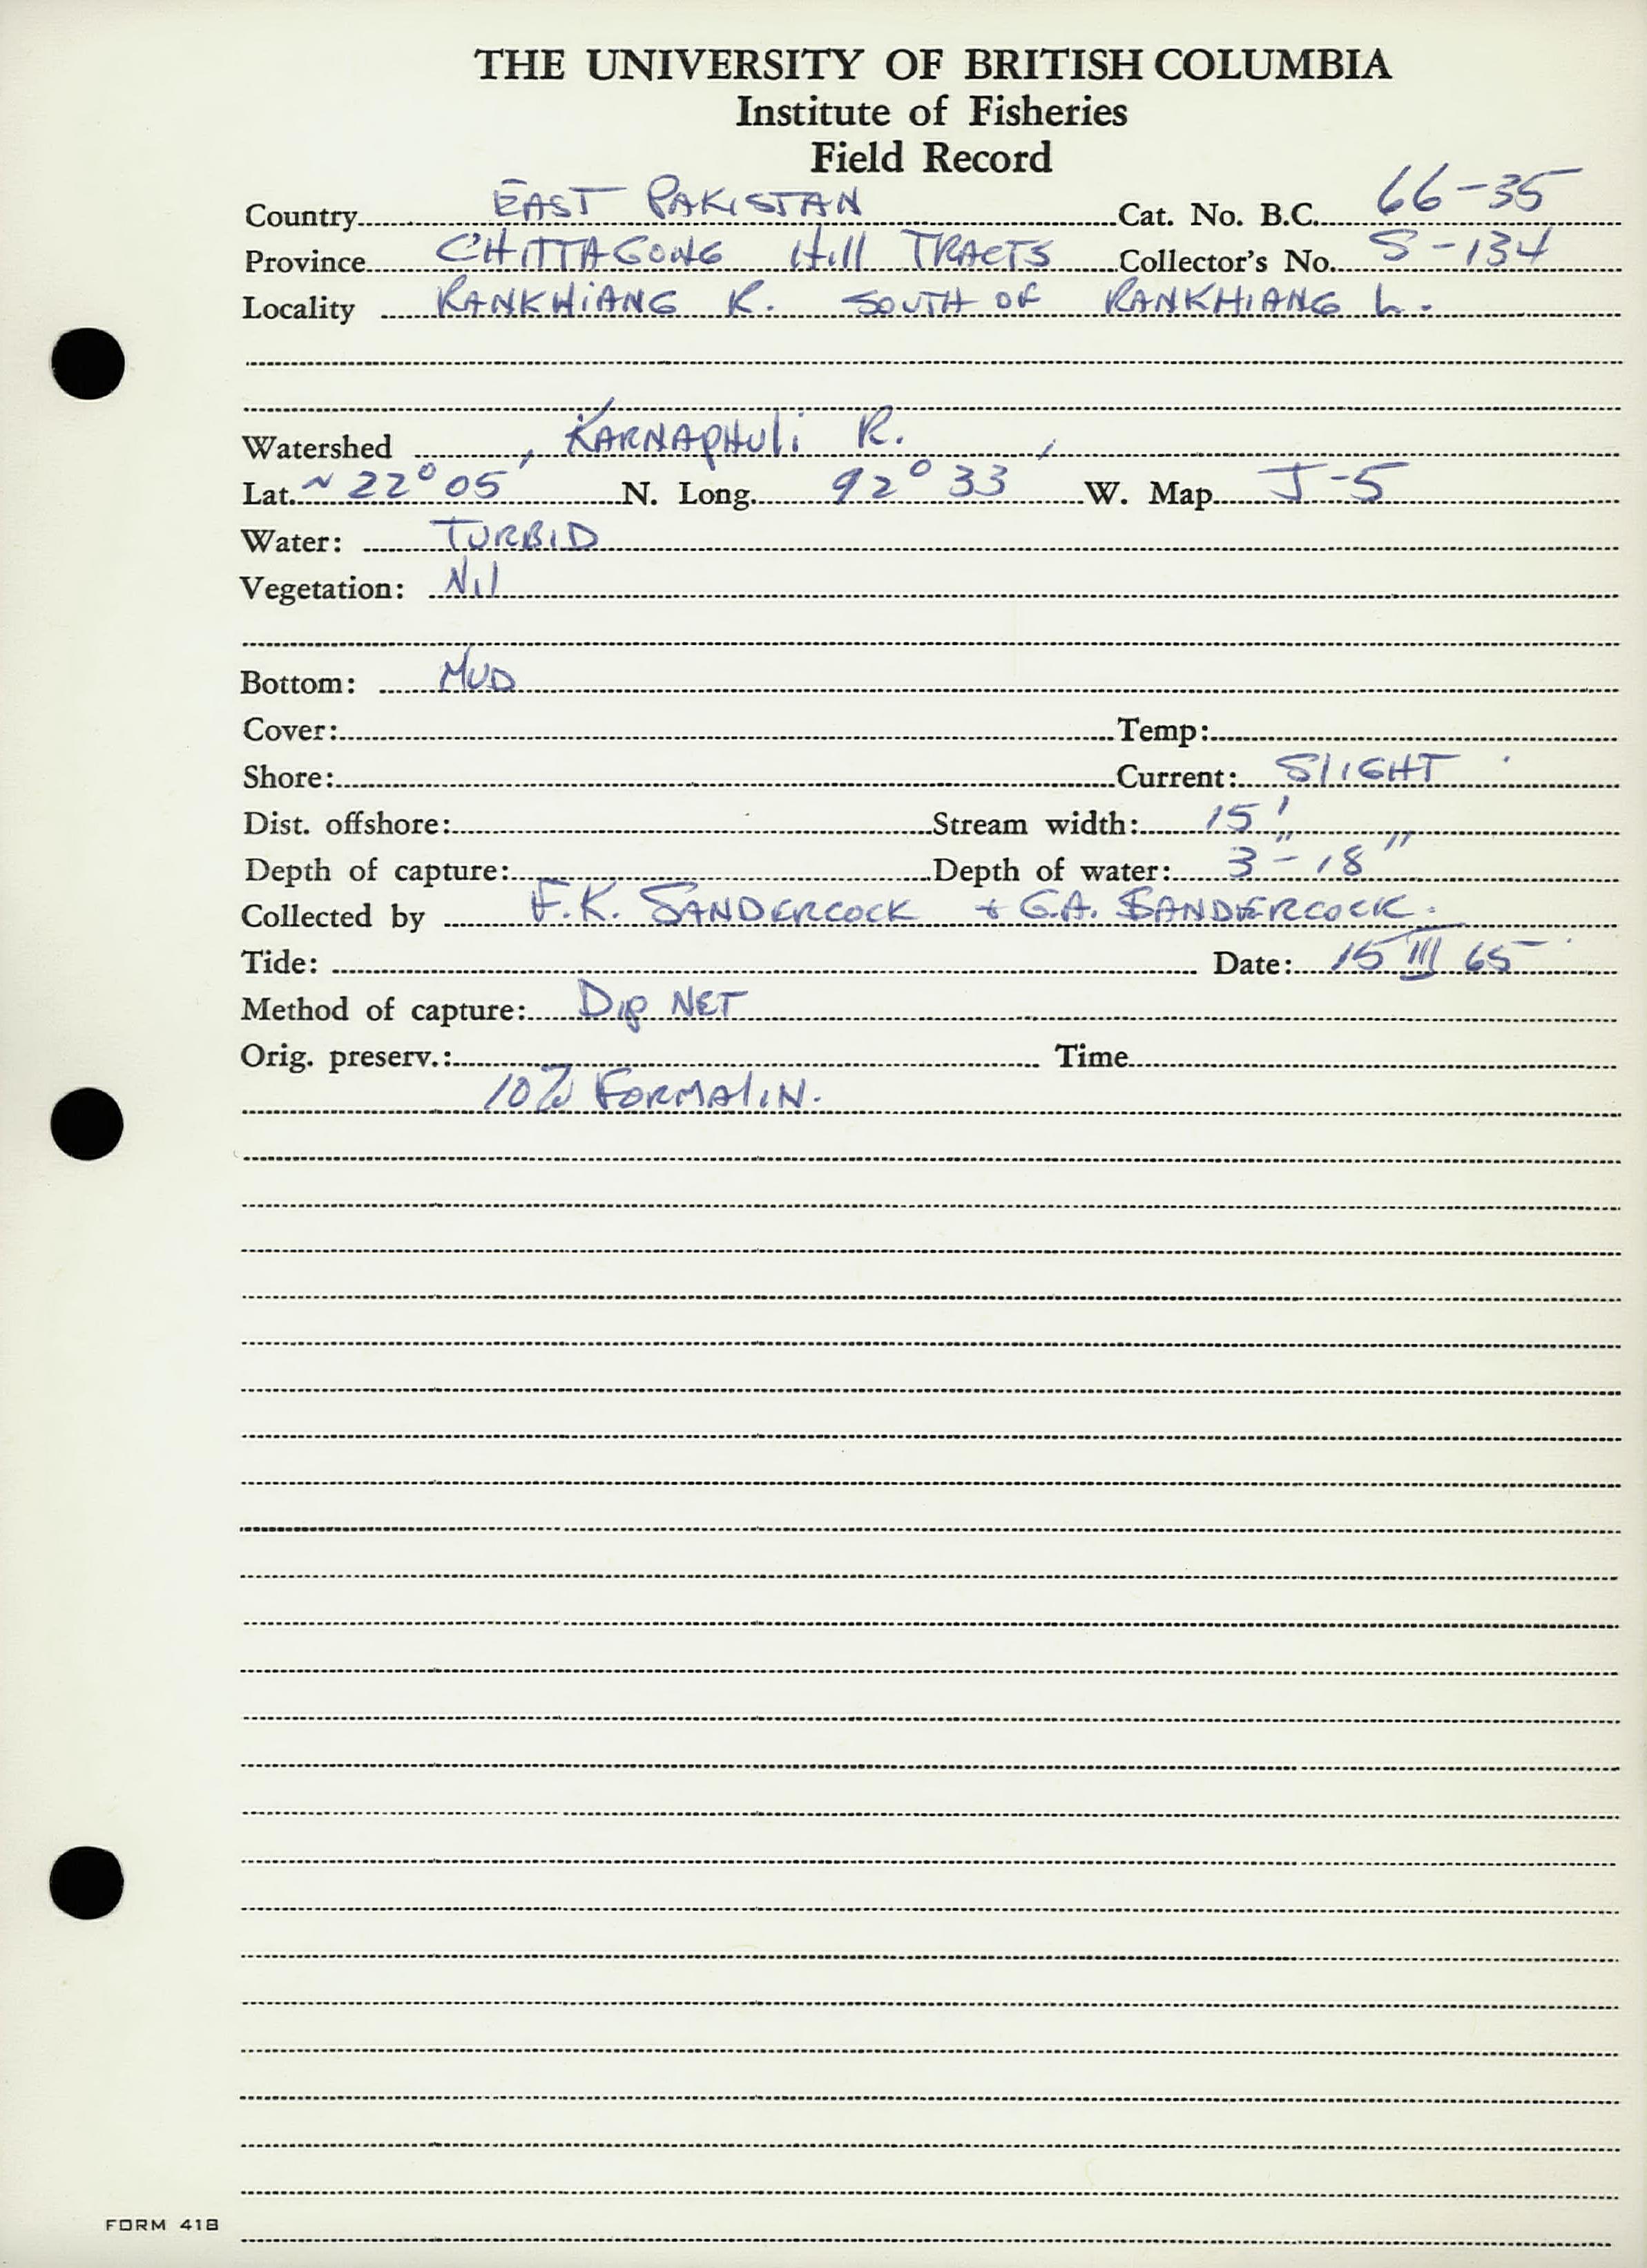 THE UNIVERSITY OF BRITISH COLUMBIA
Institute of Fisheries
Field Record
Country EAST PAKISTAN Cat. No. B.C. 66-35
Province CHITTAGONG Hill TRACTS Collector's No. S-134
Locality RANKHIANG R. SOUTH OF RANKHIANG L.
Watershed KARNAPHULI R.
Lat. ~ 22° 05' N. Long. 92° 33' W. Map J-5
Water: TURBID
Vegetation: Nil
Bottom: MUD
Cover: Temp:
Shore: Current: SLIGHT
Dist. offshore: Stream width: 15'
Depth of capture: Depth of water: 3" - 18"
Collected by F.K. SANDERCOCK + G.A. SANDERCOCK.
Tide: Date: 15 III 65
Method of capture: Dip NET
Orig. preserv.: Time
10% FORMALIN.
FORM 41B